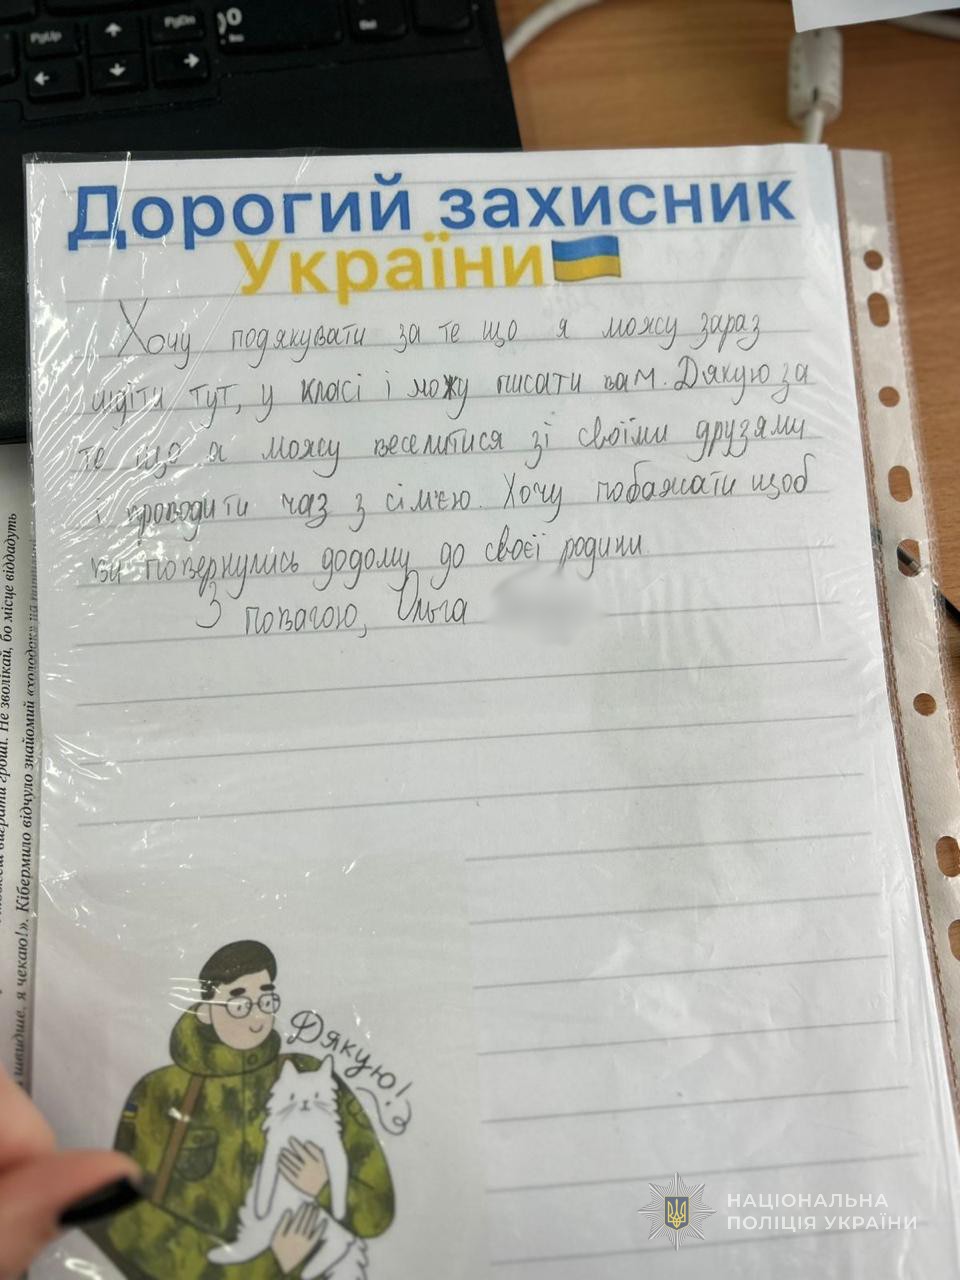 PgUp
PgDn
Дорогий захисник
України
Хочу подякувати за те що я можу зараз
сидіти тут, у класі і можу писати вам. Дякую за
те що я можу веселитися зі своїми друзями
і проводити чаз з сім'єю. Хочу побажати щоб
ви повернулись додому до своєї родини.
З повагою, Ольга
Дякую!
виграти гроші. Не зволікай, бо місце віддадуть
швидше, я чекаю!». Кібермило відчуло знайомий «холодок» на
НАЦІОНАЛЬНА
ПОЛІЦІЯ УКРАЇНИ